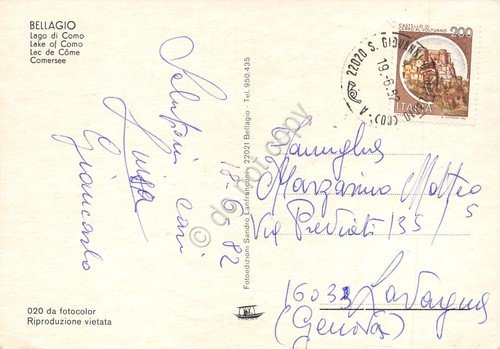 BELLAGIO
Lago di Como
Lake of Como
Lac de Côme
Comersee
Saluti
cari
Luisa
Giancarlo
17-6-82
020 da fotocolor
Riproduzione vietata
Fotoedizioni Sandro Lanfranconi - 22021 Bellagio - Tel. 950.435
200
ITALIA
22020 S. GIOVANNI
19.-6.
(CO)
Famiglia
Marzarino Matteo
Via Previati 135
16033 Lavagna
(Genova)
do not copy